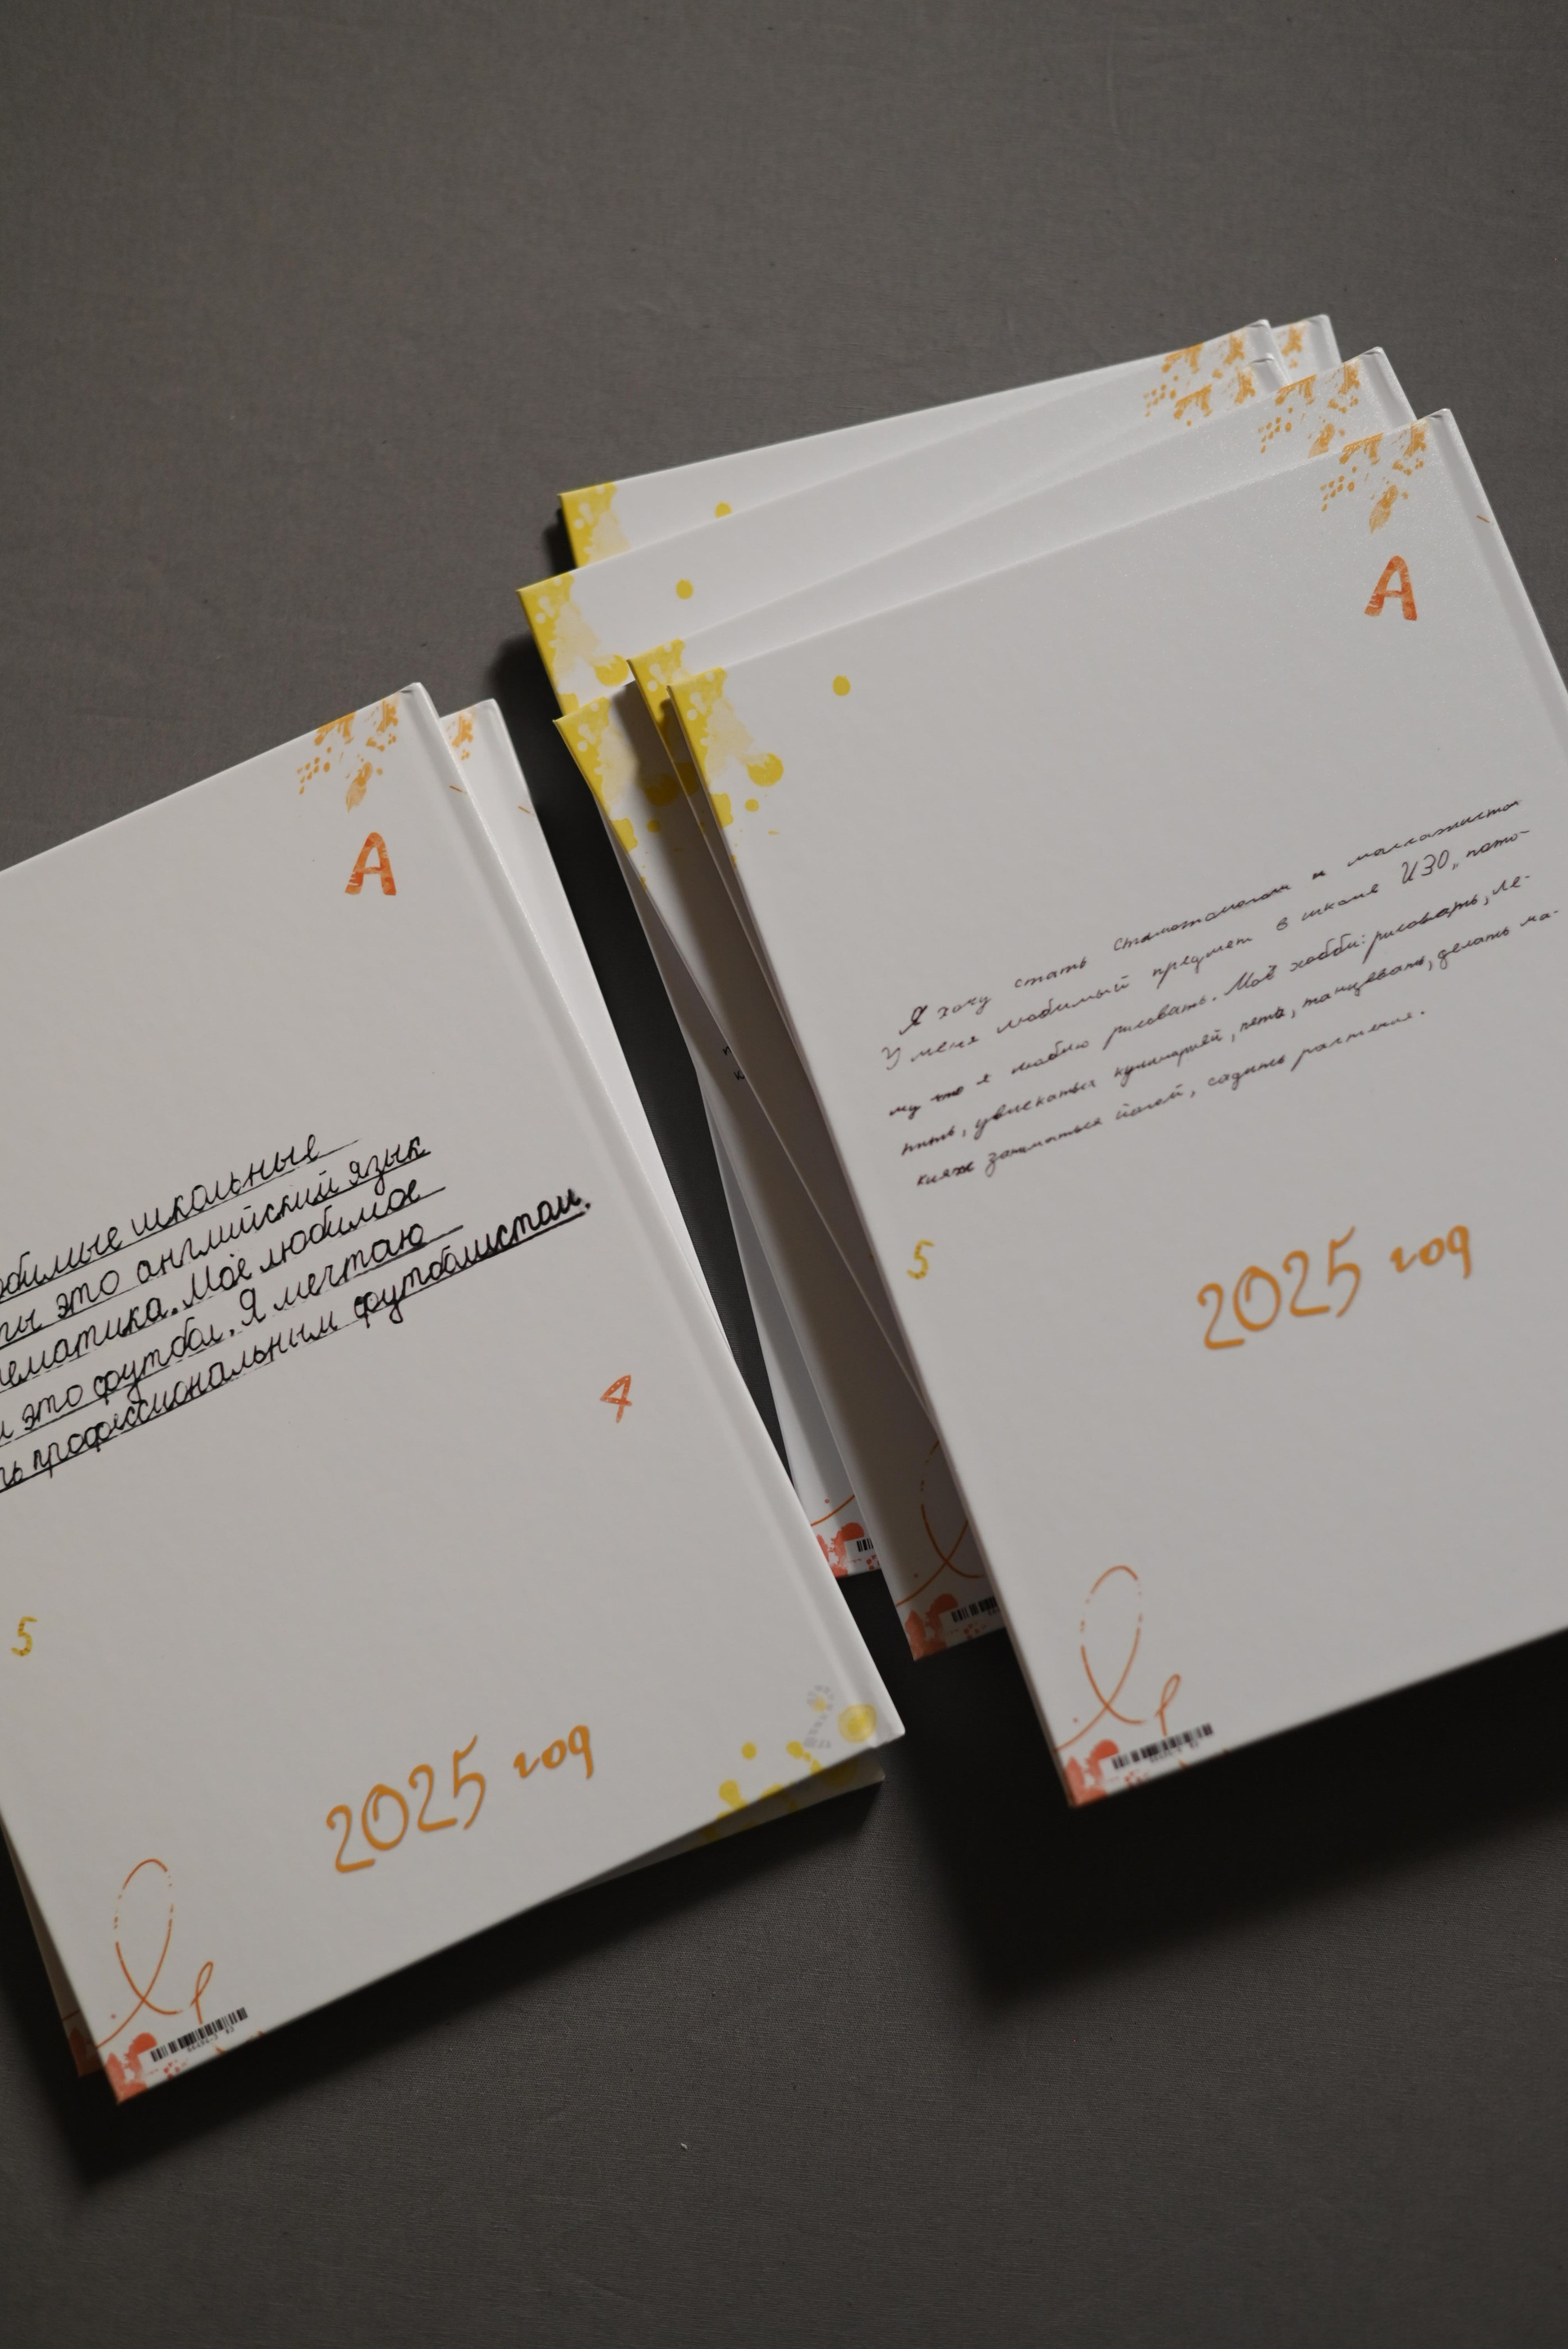 А
обимые школьные
ты это английский язык
ематика. Моё любимое
и это футбол. Я мечтаю
ть профессиональным футболистом.
4
5
2025 год
А
Я хочу стать стамотологом и массажистом
У меня любимый предмет в школе ИЗО, пото-
му что я люблю рисовать. Моё хобби: рисовать, ле-
пить, увлекаться кулинарией, петь, танцевать, делать ма-
кияж заниматься йогой, садить растения.
5
2025 год